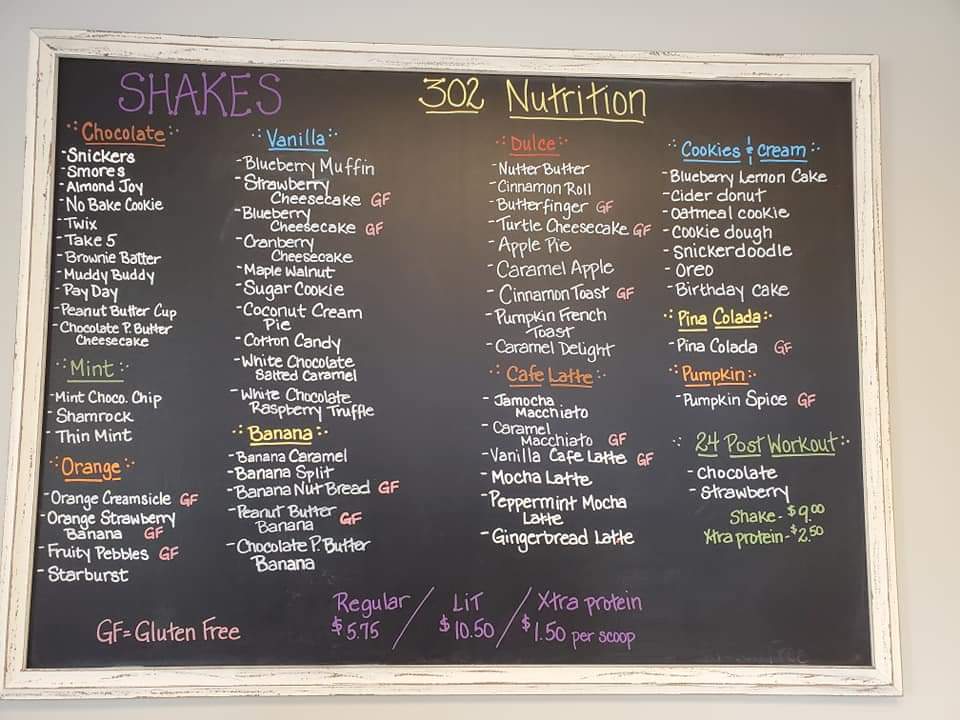 SHAKES
302 Nutrition
Chocolate
- Snickers
- Smores
- Almond Joy
- No Bake Cookie
- Twix
- Take 5
- Brownie Batter
- Muddy Buddy
- Pay Day
- Peanut Butter Cup
- Chocolate P. Butter
Cheesecake
Mint
- Mint Choco. Chip
- Shamrock
- Thin Mint
Orange
- Orange Creamsicle GF
- Orange Strawberry
Banana GF
- Fruity Pebbles GF
- Starburst
Vanilla
- Blueberry Muffin
- Strawberry
Cheesecake GF
- Blueberry
Cheesecake GF
- Cranberry
Cheesecake
- Maple Walnut
- Sugar Cookie
- Coconut Cream
Pie
- Cotton Candy
- White Chocolate
Salted Caramel
- White Chocolate
Raspberry Truffle
Banana
- Banana Caramel
- Banana Split
- Banana Nut Bread GF
- Peanut Butter
Banana GF
- Chocolate P. Butter
Banana
Dulce
- Nutter Butter
- Cinnamon Roll
- Butterfinger GF
- Turtle Cheesecake GF
- Apple Pie
- Caramel Apple
- Cinnamon Toast GF
- Pumpkin French
Toast
- Caramel Delight
Cafe Latte
- Jamocha
Macchiato
- Caramel
Macchiato GF
- Vanilla Cafe Latte GF
- Mocha Latte
- Peppermint Mocha
Latte
- Gingerbread Latte
Cookies & Cream
- Blueberry Lemon Cake
- Cider donut
- Oatmeal cookie
- Cookie dough
- Snickerdoodle
- Oreo
- Birthday cake
Pina Colada
- Pina Colada GF
Pumpkin
- Pumpkin Spice GF
24 Post Workout
- Chocolate
- Strawberry
Shake - $9.00
Xtra protein - $2.50
GF = Gluten Free
Regular / LiT / Xtra protein
$5.75 / $10.50 / $1.50 per scoop